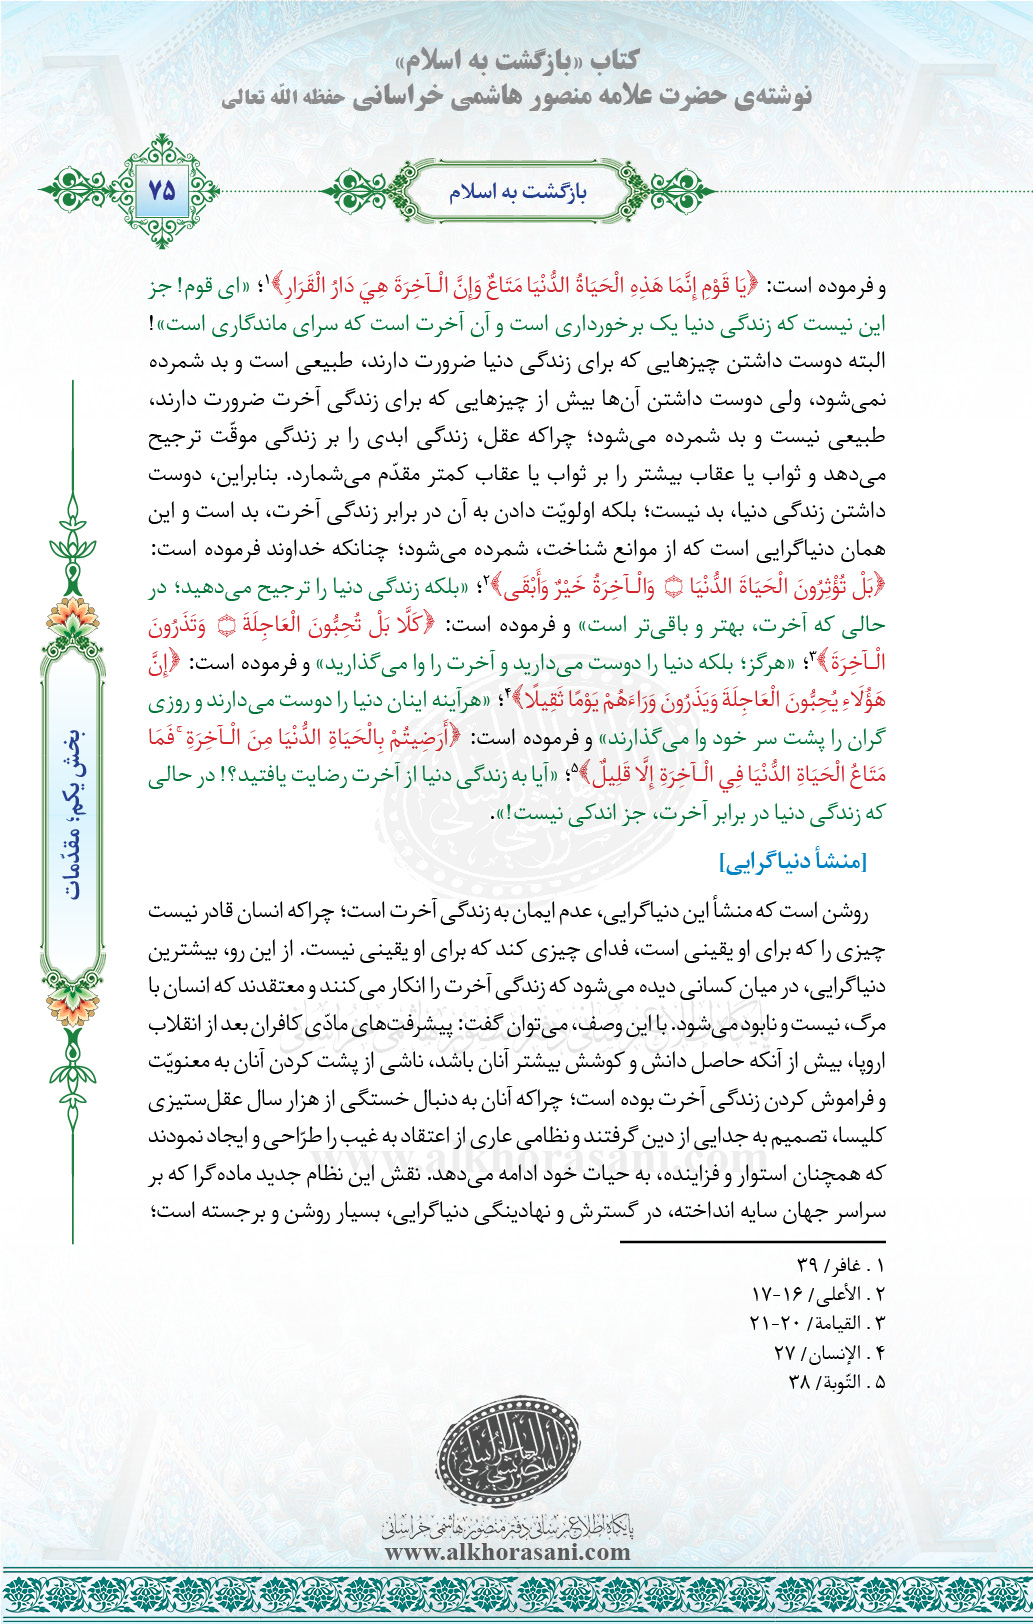 کتاب «بازگشت به اسلام»
نوشته‌ی حضرت علامه منصور هاشمی خراسانی حفظه الله تعالی
۷۵
بازگشت به اسلام
و فرموده است: ﴿يَا قَوْمِ إِنَّمَا هَذِهِ الْحَيَاةُ الدُّنْيَا مَتَاعٌ وَإِنَّ الْـآخِرَةَ هِيَ دَارُ الْقَرَارِ﴾۱؛ «ای قوم! جز
این نیست که زندگی دنیا یک برخورداری است و آن آخرت است که سرای ماندگاری است»!
البته دوست داشتن چیزهایی که برای زندگی دنیا ضرورت دارند، طبیعی است و بد شمرده
نمی‌شود، ولی دوست داشتن آن‌ها بیش از چیزهایی که برای زندگی آخرت ضرورت دارند،
طبیعی نیست و بد شمرده می‌شود؛ چراکه عقل، زندگی ابدی را بر زندگی موقّت ترجیح
می‌دهد و ثواب یا عقاب بیشتر را بر ثواب یا عقاب کمتر مقدّم می‌شمارد. بنابراین، دوست
داشتن زندگی دنیا، بد نیست؛ بلکه اولویّت دادن به آن در برابر زندگی آخرت، بد است و این
همان دنیاگرایی است که از موانع شناخت، شمرده می‌شود؛ چنانکه خداوند فرموده است:
﴿بَلْ تُؤْثِرُونَ الْحَيَاةَ الدُّنْيَا ۝ وَالْـآخِرَةُ خَيْرٌ وَأَبْقَى﴾۲؛ «بلکه زندگی دنیا را ترجیح می‌دهید؛ در
حالی که آخرت، بهتر و باقی‌تر است» و فرموده است: ﴿كَلَّا بَلْ تُحِبُّونَ الْعَاجِلَةَ ۝ وَتَذَرُونَ
الْـآخِرَةَ﴾۳؛ «هرگز؛ بلکه دنیا را دوست می‌دارید و آخرت را وا می‌گذارید» و فرموده است: ﴿إِنَّ
هَؤُلَاءِ يُحِبُّونَ الْعَاجِلَةَ وَيَذَرُونَ وَرَاءَهُمْ يَوْمًا ثَقِيلًا﴾۴؛ «هرآینه اینان دنیا را دوست می‌دارند و روزی
گران را پشت سر خود وا می‌گذارند» و فرموده است: ﴿أَرَضِيتُمْ بِالْحَيَاةِ الدُّنْيَا مِنَ الْـآخِرَةِ ۚ فَمَا
مَتَاعُ الْحَيَاةِ الدُّنْيَا فِي الْـآخِرَةِ إِلَّا قَلِيلٌ﴾۵؛ «آیا به زندگی دنیا از آخرت رضایت یافتید؟! در حالی
که زندگی دنیا در برابر آخرت، جز اندکی نیست!».
[منشأ دنیاگرایی]
روشن است که منشأ این دنیاگرایی، عدم ایمان به زندگی آخرت است؛ چراکه انسان قادر نیست
چیزی را که برای او یقینی است، فدای چیزی کند که برای او یقینی نیست. از این رو، بیشترین
دنیاگرایی، در میان کسانی دیده می‌شود که زندگی آخرت را انکار می‌کنند و معتقدند که انسان با
مرگ، نیست و نابود می‌شود. با این وصف، می‌توان گفت: پیشرفت‌های مادّی کافران بعد از انقلاب
اروپا، بیش از آنکه حاصل دانش و کوشش بیشتر آنان باشد، ناشی از پشت کردن آنان به معنویّت
و فراموش کردن زندگی آخرت بوده است؛ چراکه آنان به دنبال خستگی از هزار سال عقل‌ستیزی
کلیسا، تصمیم به جدایی از دین گرفتند و نظامی عاری از اعتقاد به غیب را طرّاحی و ایجاد نمودند
که همچنان استوار و فزاینده، به حیات خود ادامه می‌دهد. نقش این نظام جدید ماده‌گرا که بر
سراسر جهان سایه انداخته، در گسترش و نهادینگی دنیاگرایی، بسیار روشن و برجسته است؛
بخش یکم؛ مقدّمات
۱ . غافر/ ۳۹
۲ . الأعلی/ ۱۶-۱۷
۳ . القیامة/ ۲۰-۲۱
۴ . الإنسان/ ۲۷
۵ . التّوبة/ ۳۸
پایگاه اطلاع‌رسانی دفتر منصور هاشمی خراسانی
www.alkhorasani.com